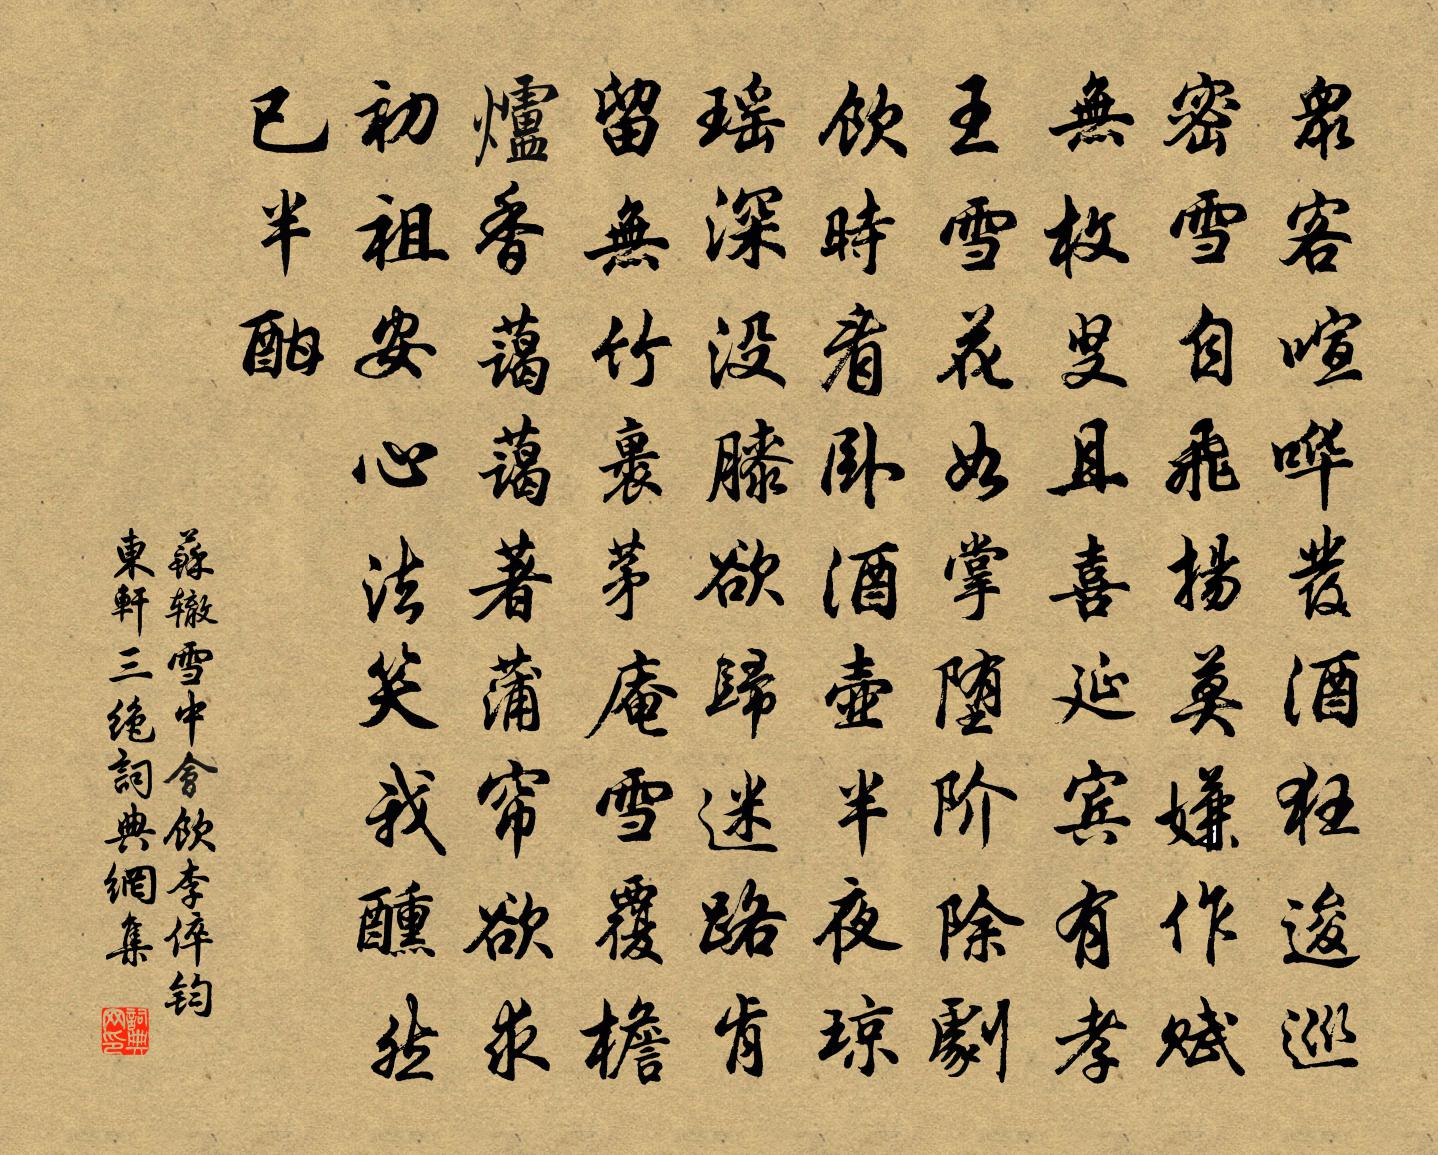 衆客喧哗發酒狂逡巡
密雪自飛揚莫嫌作賦
無枚叟且喜延宾有孝
王雪花如掌堕阶除劇
飲時看卧酒壺半夜琼
瑶深没膝欲歸迷路肯
留無竹裹茅庵雪覆檐
爐香藹藹著蒲帘欲求
初祖安心法笑我醺然
已半酣
蘇辙雪中會飲李倅钧
東軒三絶詞典網集
詞典网印